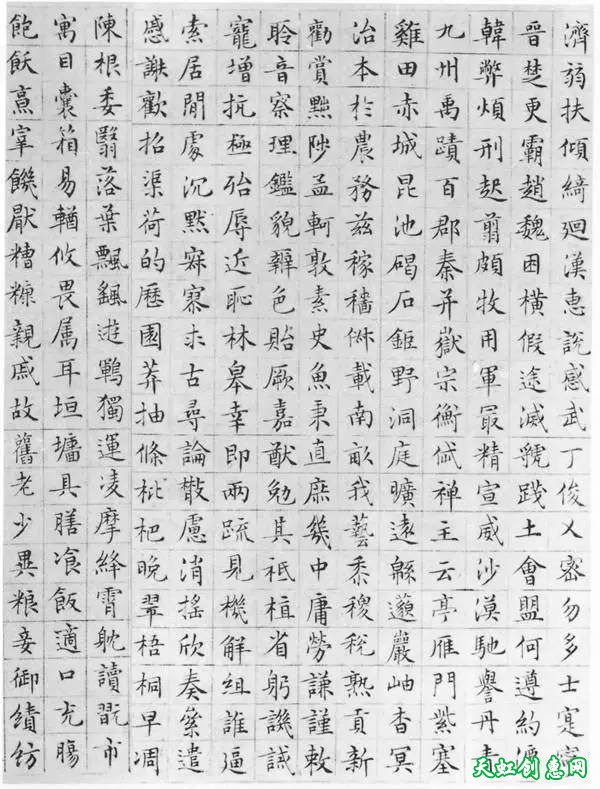 濟弱扶傾綺迴漢惠說感武丁俊乂密勿多士寔寧
晉楚更霸趙魏困橫假途滅虢踐土會盟何遵約
韓弊煩刑起翦頗牧用軍冣精宣威沙漠馳譽丹青
九州禹蹟百郡秦并嶽宗衡岱禪主云亭雁門紫塞
雞田赤城昆池碣石鉅野洞庭曠遠緜邈巖岫杳冥
治本於農務茲稼穡俶載南畝我藝黍稷稅熟貢新
勸賞黜陟孟軻敦素史魚秉直庶幾中庸勞謙謹敕
聆音察理鑑貌辨色貽厥嘉猷勉其祗植省躬譏誡
寵增抗極殆辱近恥林皋幸即兩疏見機解組誰逼
索居閒處沉默寂寥求古尋論散慮消搖欣奏累遣
慼謝歡招渠荷的歷園莽抽條枇杷晚翠梧桐早凋
陳根委翳落葉飄颻遊鵾獨運凌摩絳霄耽讀翫市
寓目囊箱易輶攸畏属耳垣墻具膳飡飯適口充腸
飽飫烹宰饑厭糟糠親戚故舊老少異糧妾御績紡
天虹创惠网